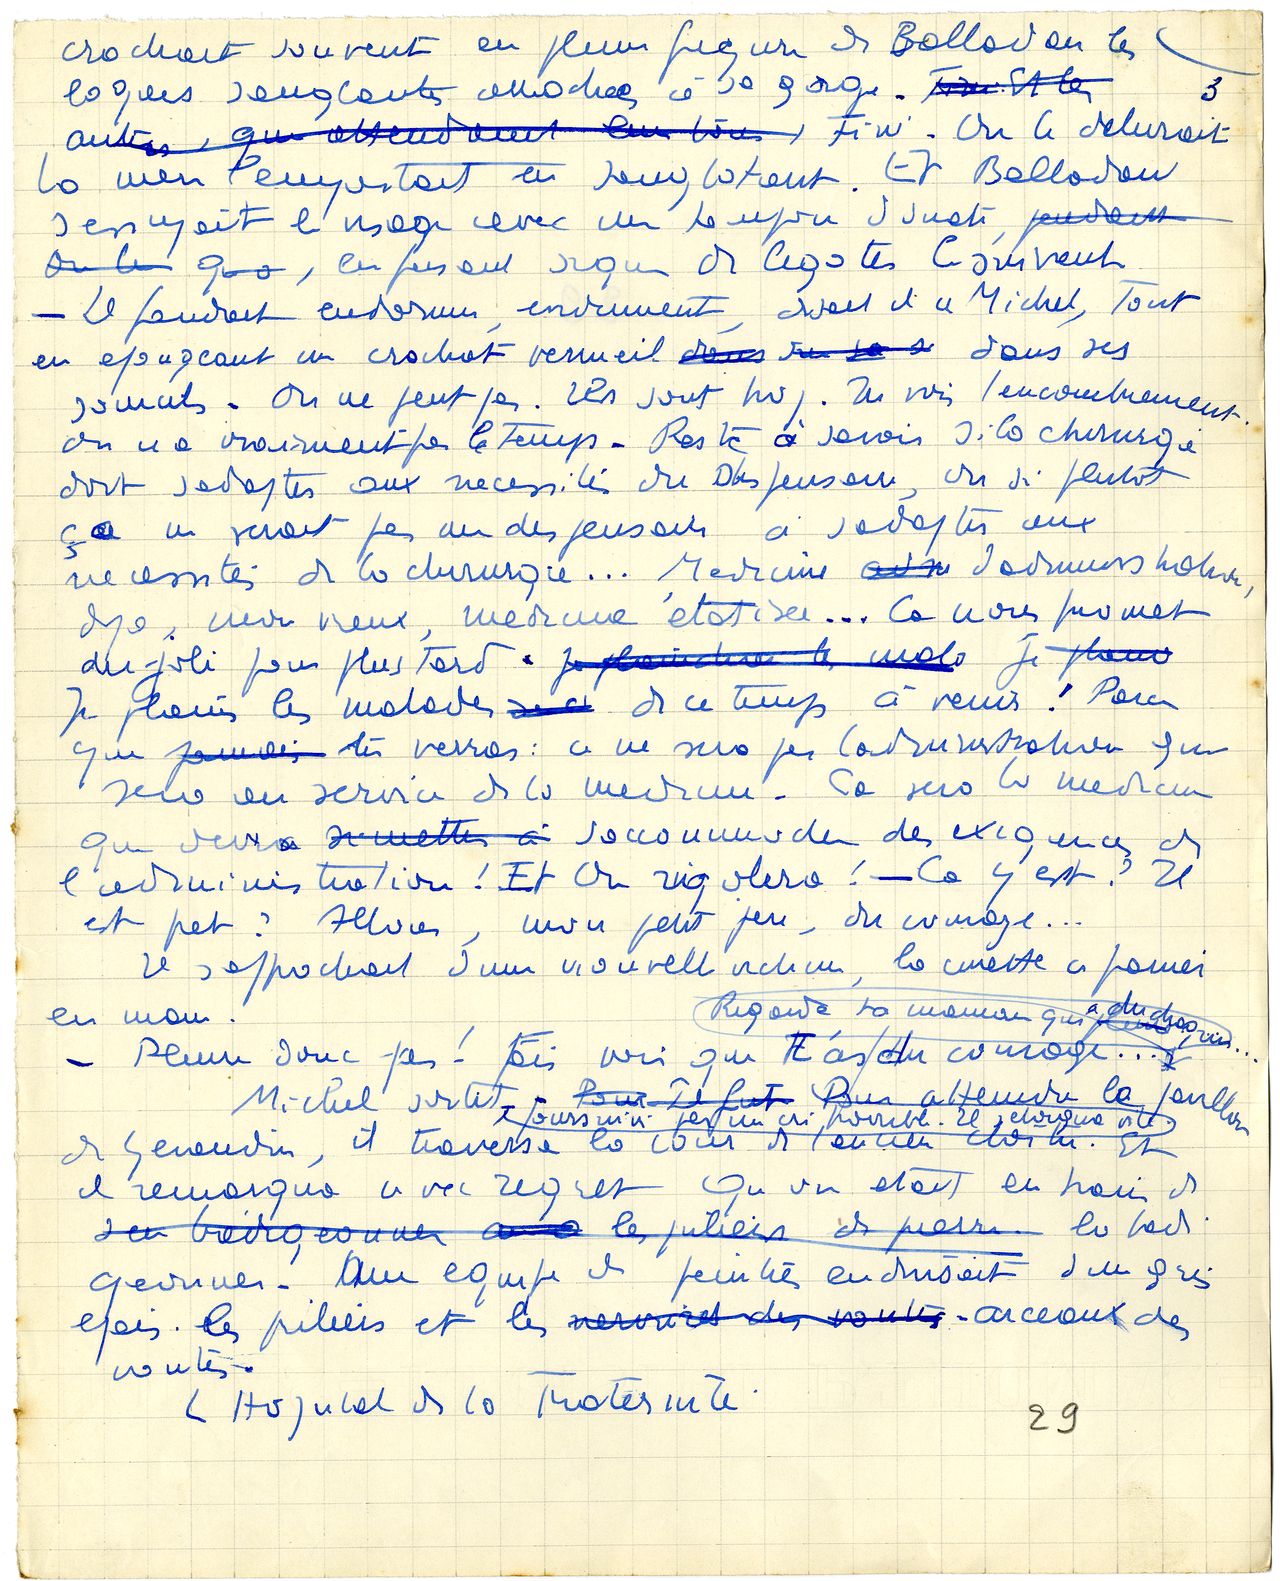 crochait souvent en pleine figure de Belladan les
loques sanglantes arrachées à sa gorge. Et les 3
autres, qui attendaient leur tour, Fini. On le délivrait
la mère l'emportait en sanglotant. Et Belladan
s'essuyait le visage avec un tampon d'ouate, pendant
, en faisant signe de ligoter le suivant
— Il faudrait endormir, évidemment, disait-il à Michel, Tout
en épongeant un crachat vermeil dans ses
sourcils. On ne peut pas. Ils sont trop. Tu vois l'encombrement.
On n'a vraiment pas le temps. Reste à savoir si la chirurgie
doit s'adapter aux nécessités du Dispensaire, ou si plutôt
ça ne serait pas au dispensaire à s'adapter aux
nécessités de la chirurgie... Médecine d'administration,
déjà, mon vieux, médecine étatisée... Ca nous promet
du joli pour plus tard. Je plaindrai les malo Je plains
Je plains les malades de ce temps à venir ! Parce
que jamais tu verras : ce ne sera pas l'administration qui
sera au service de la médecine. Ca sera la médecine
qui devra se mettre à s'accommoder des exigences de
l'administration ! Et On rigolera ! — Ca y est ? Il
est prêt ? Allons, mon petit père, du courage...
Il s'approchait d'une nouvelle victime, la curette à
en main. Regarde ta maman qui a du chagrin...
— Pleure donc pas ! Fais voir que T'as du courage...
Michel sortit, Pour Il fut Pour attendre la
poursuivi par un cri horrible. Il s'éloigna vite.
de Géraudin, il traversa la cour de l'ancien cloître. Et
il remarqua avec regret qu'on était en train de
badigeonner les piliers de pierre la badi
geonner. Une équipe de peintres enduisait d'un gris
épais les piliers et les nervures des voûtes. arceaux des
voûtes.
L'Hôpital de la Fraternité.
29